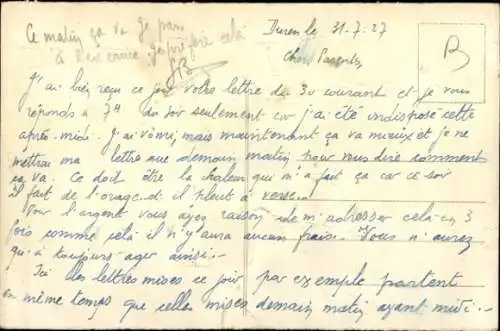 Ce matin ça va je pars
à je préfère cela
Duren le 31-7-27
Chers Parents,
B
J'ai bien reçu ce jour votre lettre du 30 courant et je vous
réponds à 7h du soir seulement car j'ai été indisposé cette
après-midi. J'ai vomi, mais maintenant ça va mieux et je ne
mettrai ma lettre que demain matin pour vous dire comment
ça va. Ce doit être la chaleur qui m'a fait ça car ce soir
il fait de l'orage et il pleut à verse.
Pour l'argent vous avez raison de m'adresser cela en 3
fois comme celà il n'y aura aucun frais. Vous n'aurez
qu'à toujours agir ainsi.
Ici les lettres mises ce jour par exemple partent
en même temps que celles mises demain matin avant midi.